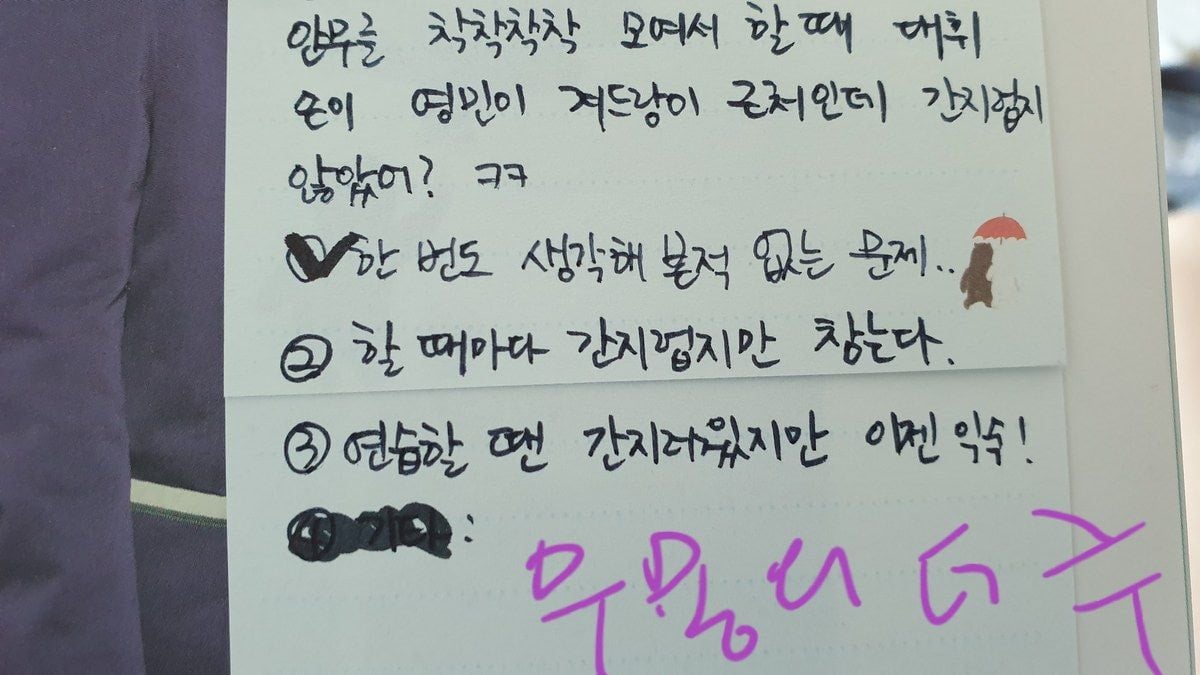 안무를 착착착착 모여서 할 때 대휘
손이 영민이 겨드랑이 근처인데 간지럽지
않았어? ㅋㅋ
① 한 번도 생각해 본적 없는 문제..
② 할 때마다 간지럽지만 참는다.
③ 연습할 땐 간지러웠지만 이젠 익숙!
④ 기타 :